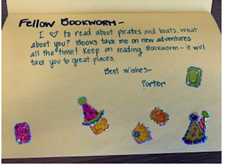 Fellow Bookworm-
I ♡ to read about pirates and boats. What
about you? Books take me on new adventures
all the time! Keep on reading Bookworm - it will
take you to great places.
Best Wishes-
Porter